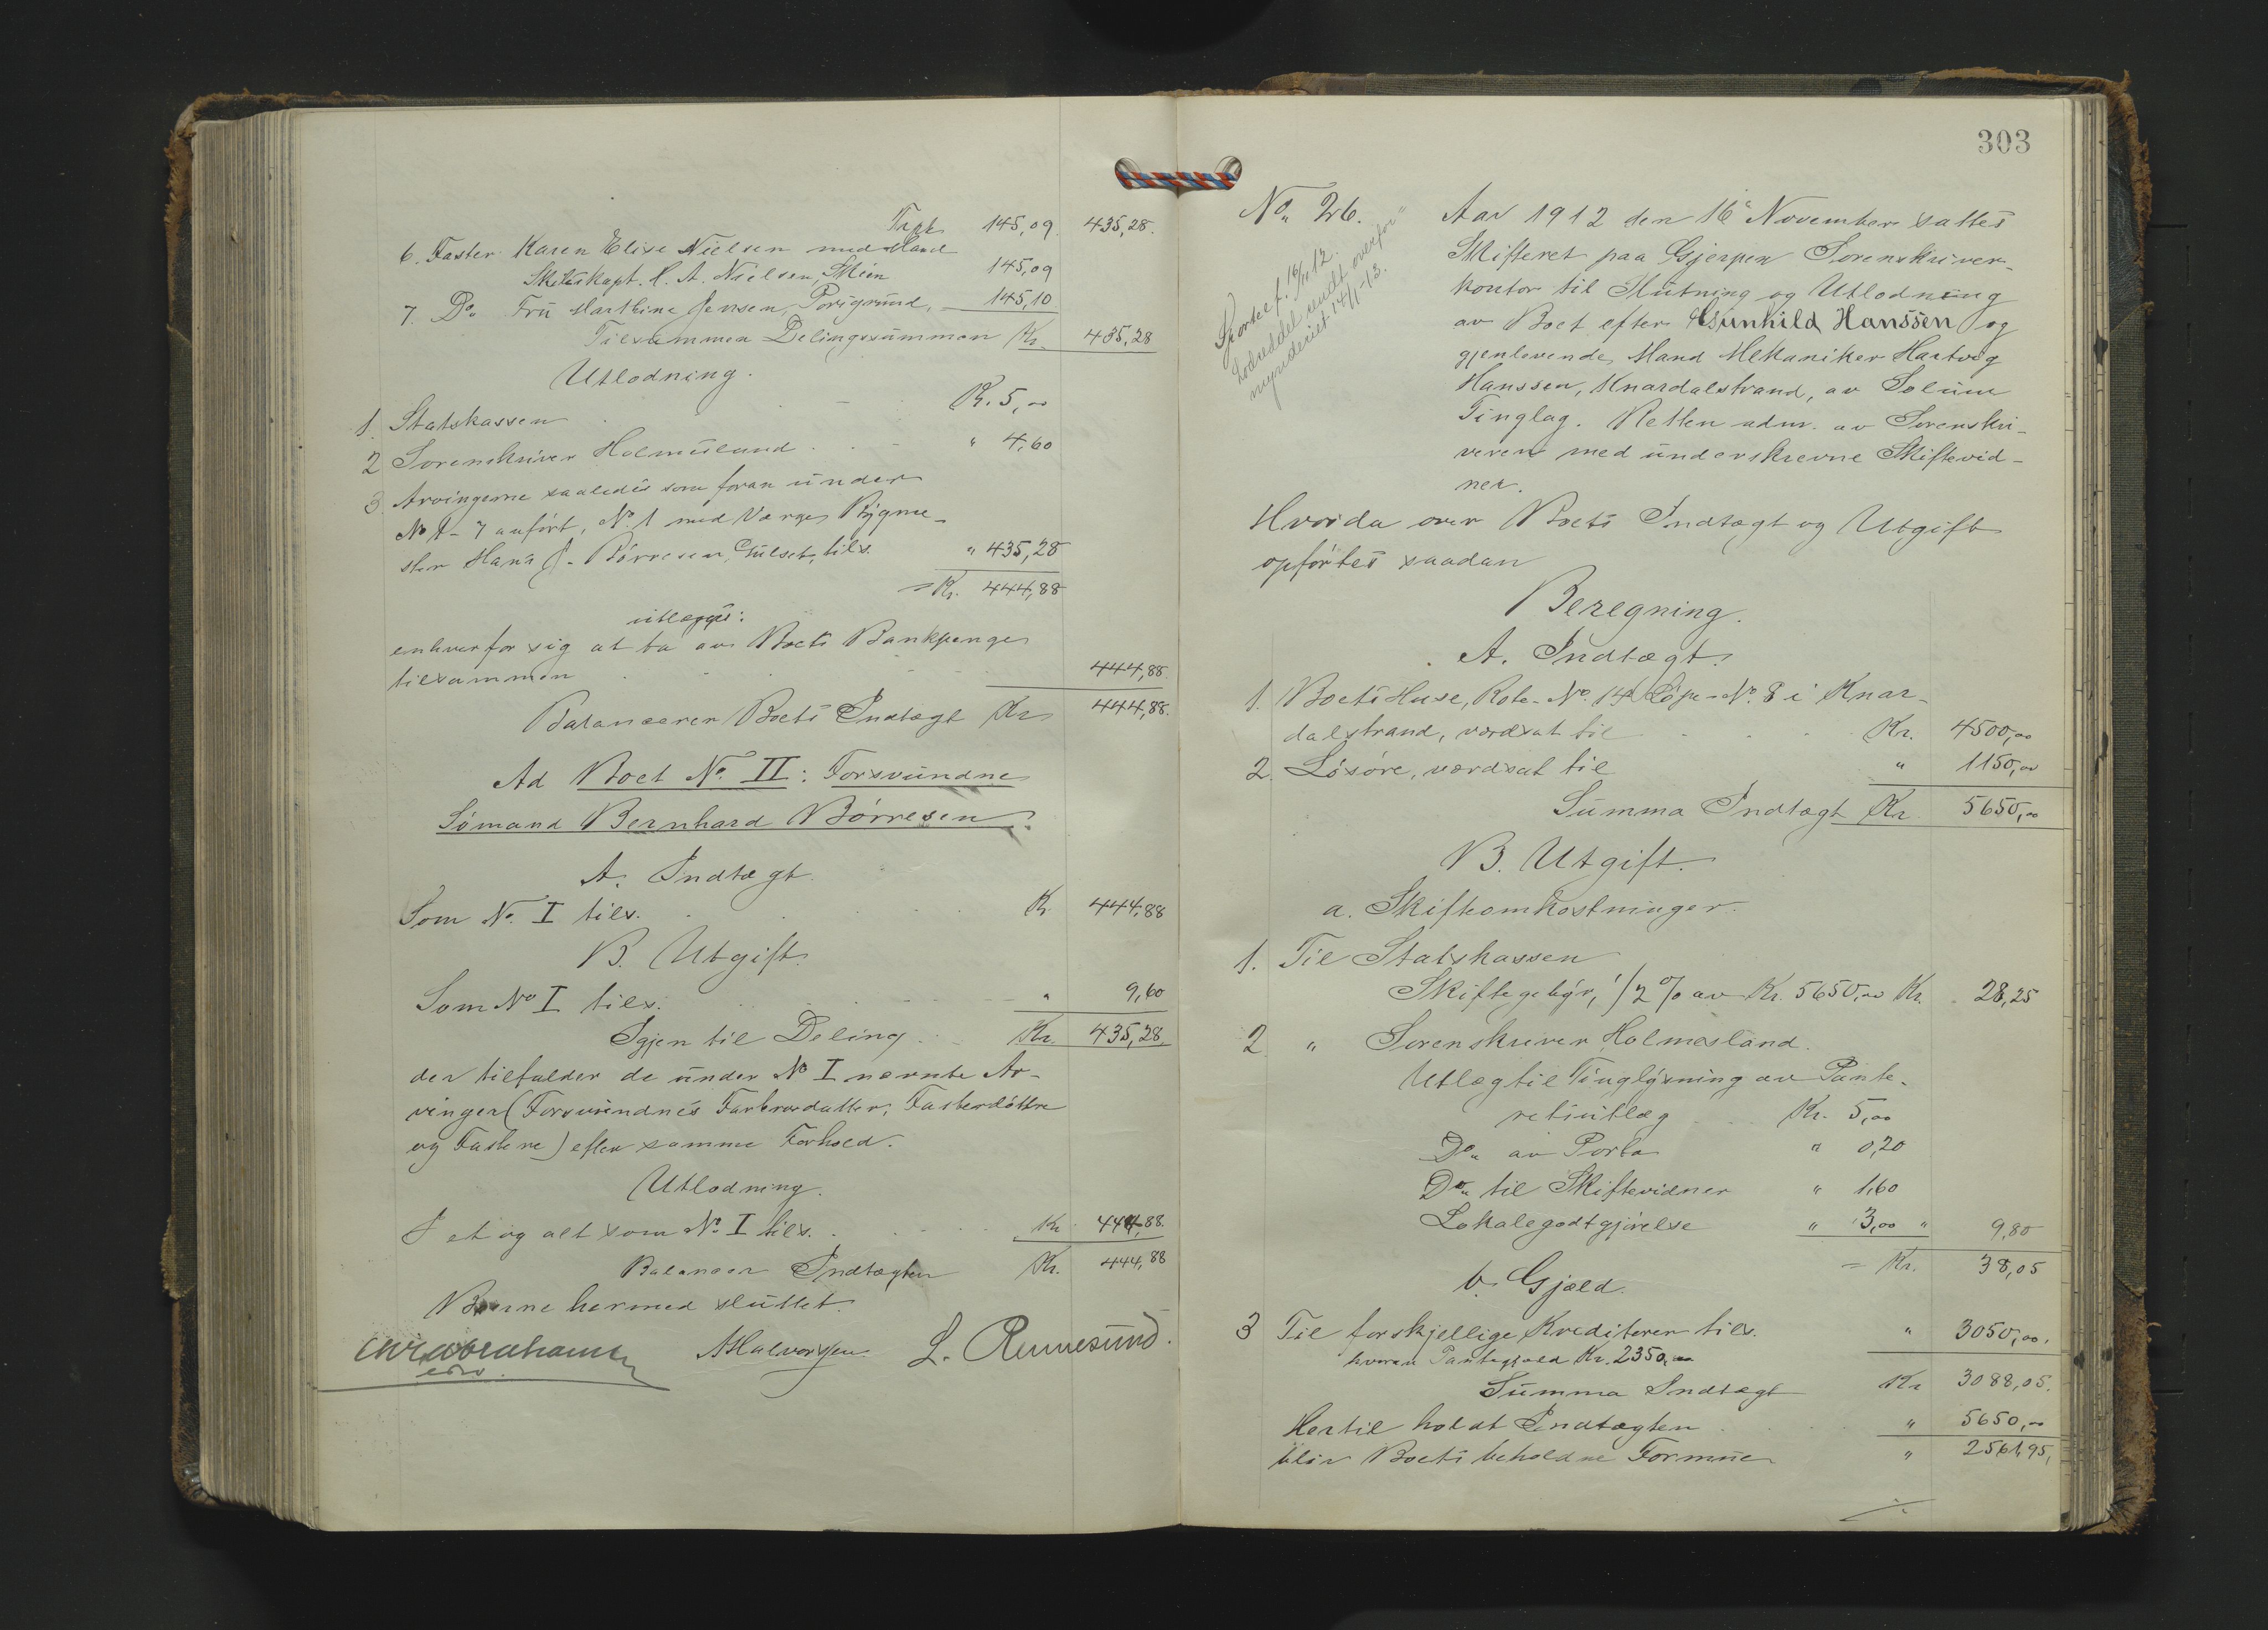 Trpt. 145,09 435,28.
6. Faster Karen Elise Nielsen med Mand
Skibskapt. H. A. Nielsen, Skien 145,09
7. Do. Fru Marthine Jensen, Porsgrund, 145,10
Tilsammen Delingssummen Kr. 435,28
Utlodning.
1. Statskassen Kr. 5,00
2 Sorenskriver Holmesland " 4,60
3. Arvingerne saaledes som foran under
No 1-7 anført, No. 1 med Værge, Bygme-
ster Hans J. Børresen, Gulset, tils. " 435,28
= Kr. 444,88
utlægges:
enhver for sig at ta av Boets Bankpenge
tilsammen 444,88.
Balancerer Boets Indtægt Kr. 444,88.
Ad Boet No. II: Forsvundne
Sømand Bernhard Børresen.
A. Indtægt.
Som No. I tils. Kr. 444,88
B. Utgift.
Som No I tils. " 9,60
Igjen til Deling Kr. 435,28.
der tilfalder de under No I nævnte Ar-
vinger (Forsvundnes Farbrordatter, Fasterdøttre
og Fastere) efter samme Forhold.
Utlodning.
I et og alt som No. I tils. Kr. 444,88.
Balancer Indtægten Kr. 444,88
Boerne hermed sluttet.
Chr. Abrahamsen AHalvorsen L. Rennesund.
edsv.
303
No. 26.
Aar 1912 den 16de November sattes
Skifteret paa Gjerpen Sorenskriver-
kontor til Slutning og Utlodning
av Boet efter Gunhild Hanssen og
gjenlevende Mand Mekaniker Hartvig
Hanssen, Knardalstrand, av Solum
Tinglag. Retten adm. av Sorenskri-
veren med underskrevne Skiftevid-
ner.
Hvorda over Boets Indtægt og Utgift
opførtes saadan
Beregning.
A. Indtægt.
1. Boets Huse, Rode-No. 14 Løpe-No. 8 i Knar-
dalstrand, værdsat til Kr. 4500,00
2. Løsøre, værdsat til " 1150,00
Summa Indtægt Kr. 5650,00
B. Utgift.
a. Skifteomkostninger.
1. Til Statskassen
Skiftegebyr, 1/2 % av Kr. 5650,00 Kr. 28,25
2 " Sorenskriver Holmesland.
Utlæg til Tinglysning av Pante-
retsutlæg Kr. 5,00
Do. av Porto " 0,20
Do. til Skiftevidner " 1,60
Lokalegodtgjørelse " 3,00 " 9,80
= Kr. 38,05
b. Gjæld.
3 Til forskjellige Kreditorer tils. " 3050,00.
hvorav Pantegjæld Kr. 2350,00
Summa Indtægt Kr 3088,05.
Hertil holdt Indtægten " 5650,00
blir Boets beholdne Formue " 2561,95,